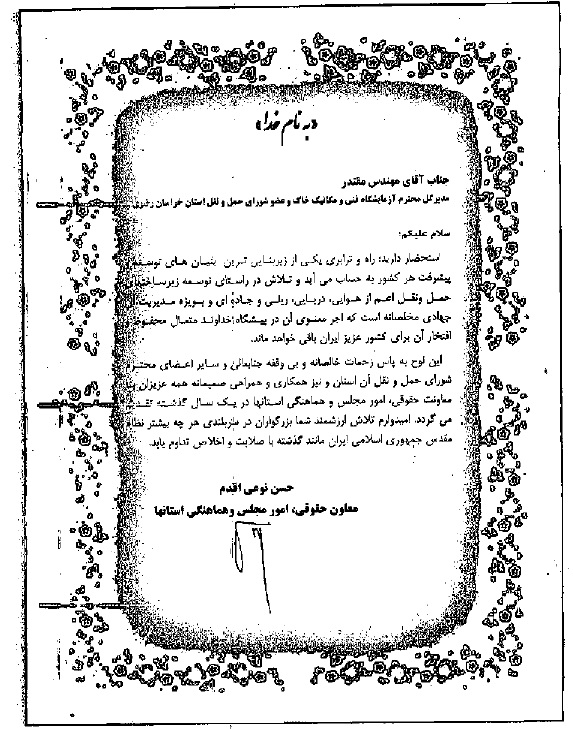 «به نام خدا»
جناب آقای مهندس مقتدر
مدیرکل محترم آزمایشگاه فنی و مکانیک خاک و عضو شورای حمل و نقل استان خراسان رضوی
سلام علیکم؛
استحضار دارید؛ راه و ترابری یکی از زیربنایی ترین بنیان های توسعه
پیشرفت هر کشور به حساب می آید و تلاش در راستای توسعه زیرساختهای
حمل ونقل اعم از هوایی، دریایی، ریلی و جاده ای و بویژه مدیریت
جهادی مخلصانه است که اجر معنوی آن در پیشگاه خداوند متعال محفوظ
افتخار آن برای کشور عزیز ایران باقی خواهد ماند.
این لوح به پاس زحمات خالصانه و بی وقفه جنابعالی و سایر اعضای محترم
شورای حمل و نقل آن استان و نیز همکاری و همراهی صمیمانه همه عزیزان با
معاونت حقوقی، امور مجلس و هماهنگی استانها در یک سال گذشته تقدیم
می گردد. امیدوارم تلاش ارزشمند شما بزرگواران در سربلندی هر چه بیشتر نظام
مقدس جمهوری اسلامی ایران مانند گذشته با صلابت و اخلاص تداوم یابد.
حسن نوعی اقدم
معاون حقوقی، امور مجلس وهماهنگی استانها